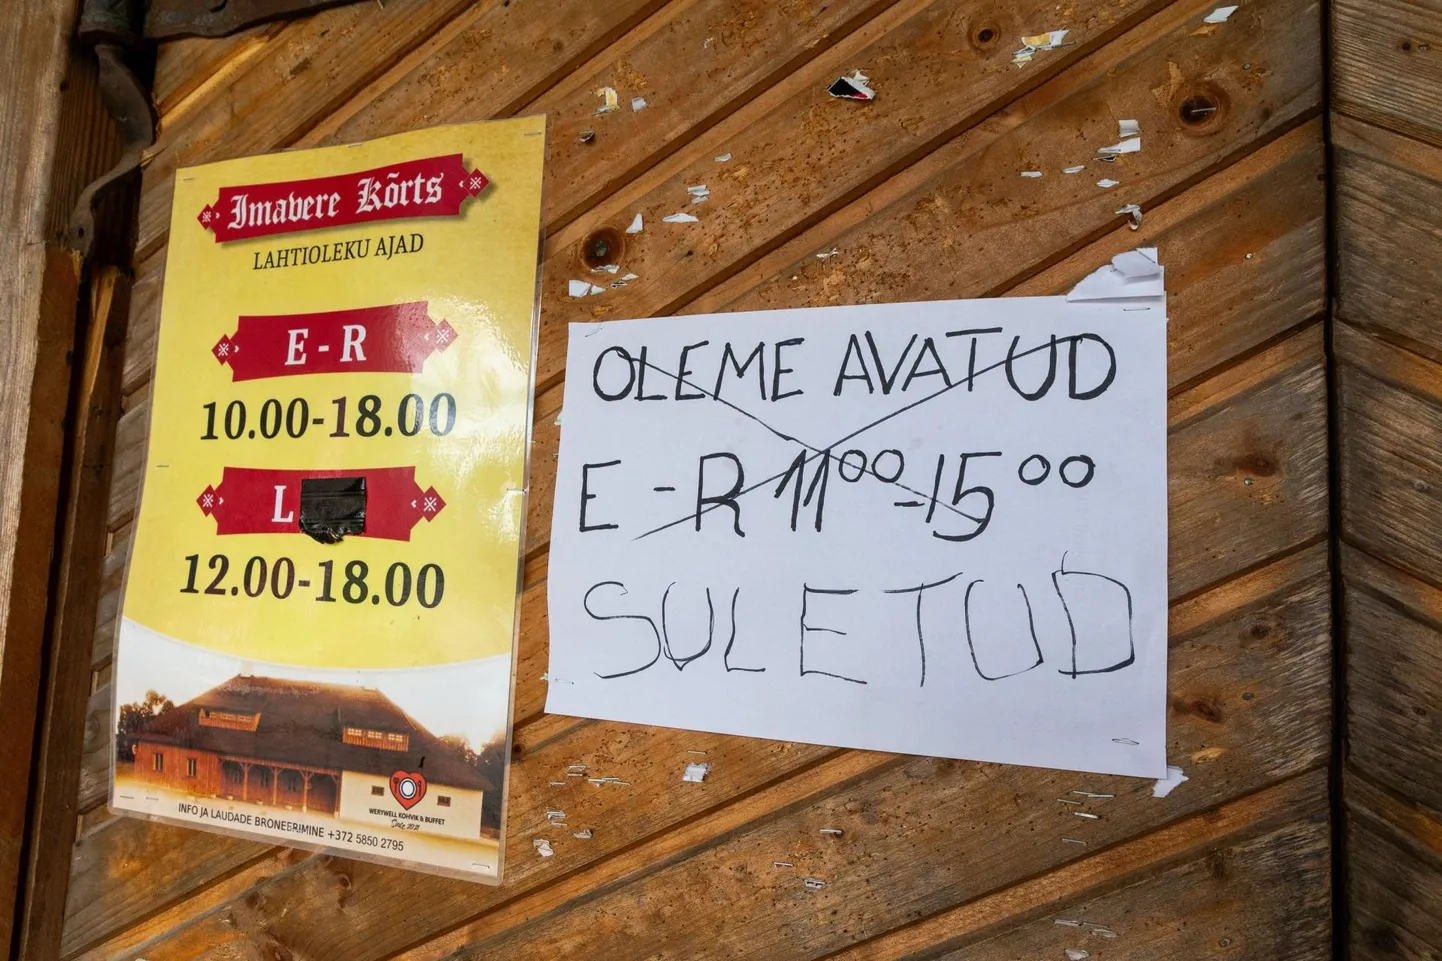 Imavere Kõrts
LAHTIOLEKU AJAD
E - R
10.00-18.00
L
12.00-18.00
WERYWELL KOHVIK & BUFFET
Date 2021
INFO JA LAUDADE BRONEERIMINE +372 5850 2795
OLEME AVATUD
E - R 11⁰⁰-15⁰⁰
SULETUD